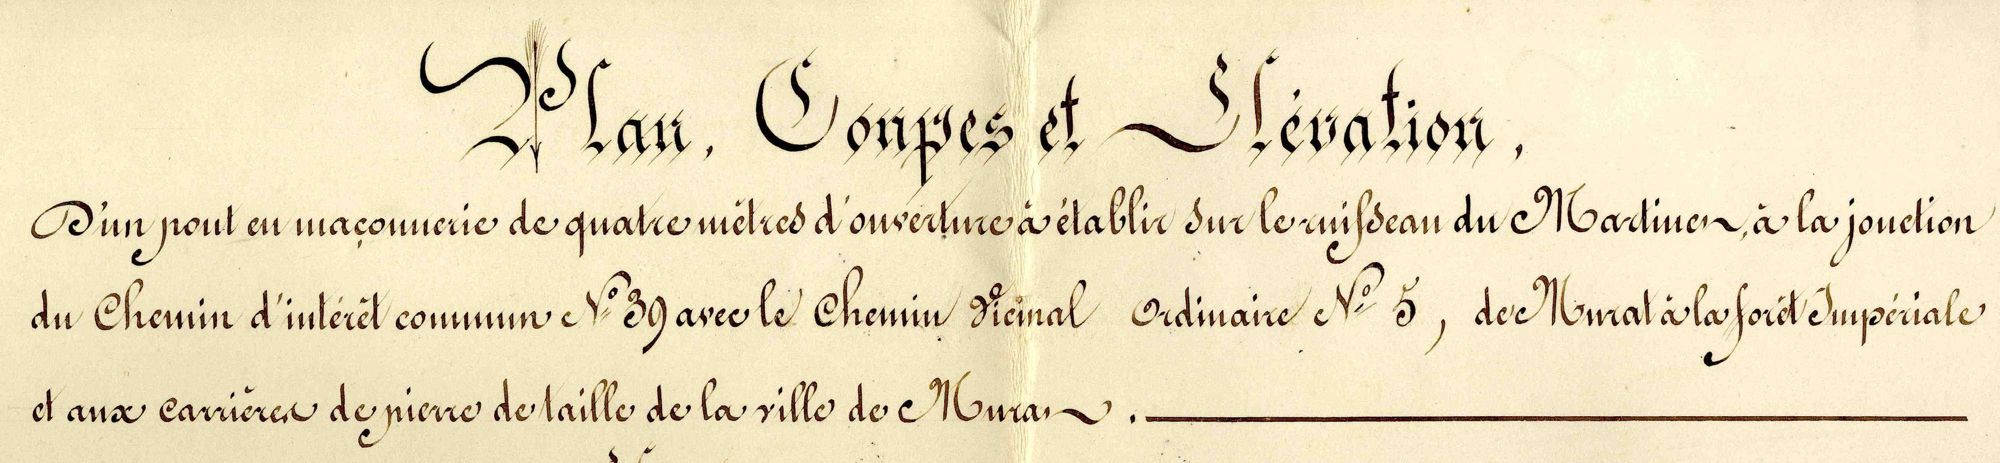 Plan, Coupes et Elévation,
D'un pont en maçonnerie de quatre mètres d'ouverture à établir sur le ruisseau du Martinet, à la jonction
du Chemin d'intérêt commun N° 39 avec le Chemin Vicinal Ordinaire N° 5, de Murat à la forêt Impériale
et aux carrières de pierre de taille de la ville de Murat.